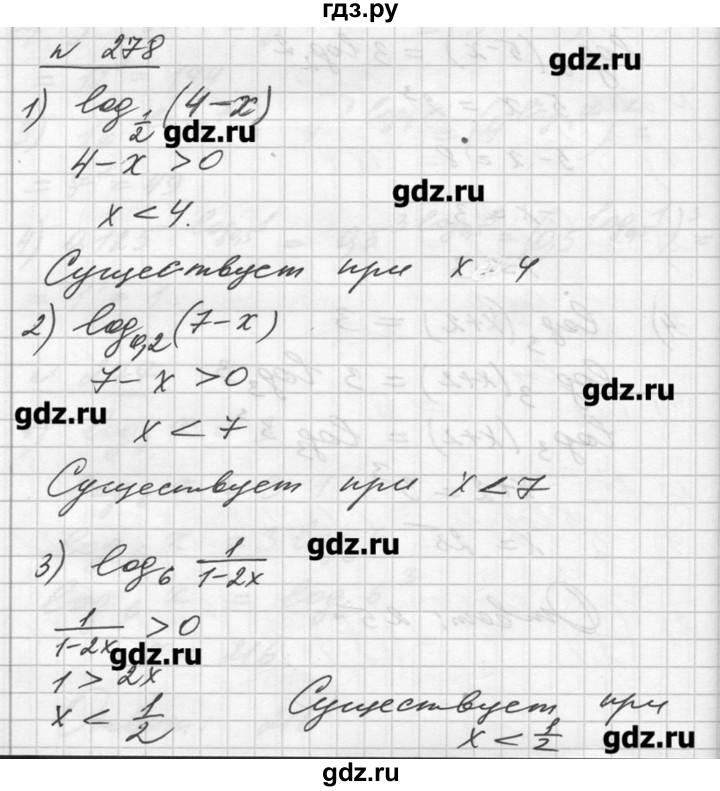 гдз.ру
№ 278
gdz.ru
1) log_{1/2} (4-x)
gdz.ru
4-x > 0
gdz.ru
x < 4.
Существует при x 4
2) log_{0,2} (7-x)
7-x > 0
gdz.ru
gdz.ru
x < 7
Существует при x < 7
gdz.ru
3) log_6 1/(1-2x)
1/(1-2x) > 0
gdz.ru
1 > 2x
x < 1/2
Существует при
x < 1/2
gdz.ru
gdz.ru